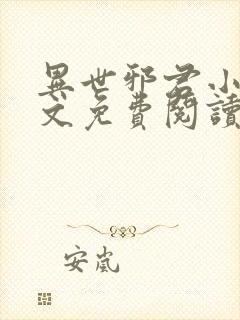 異世邪君小
文免費閱讀
安嵐